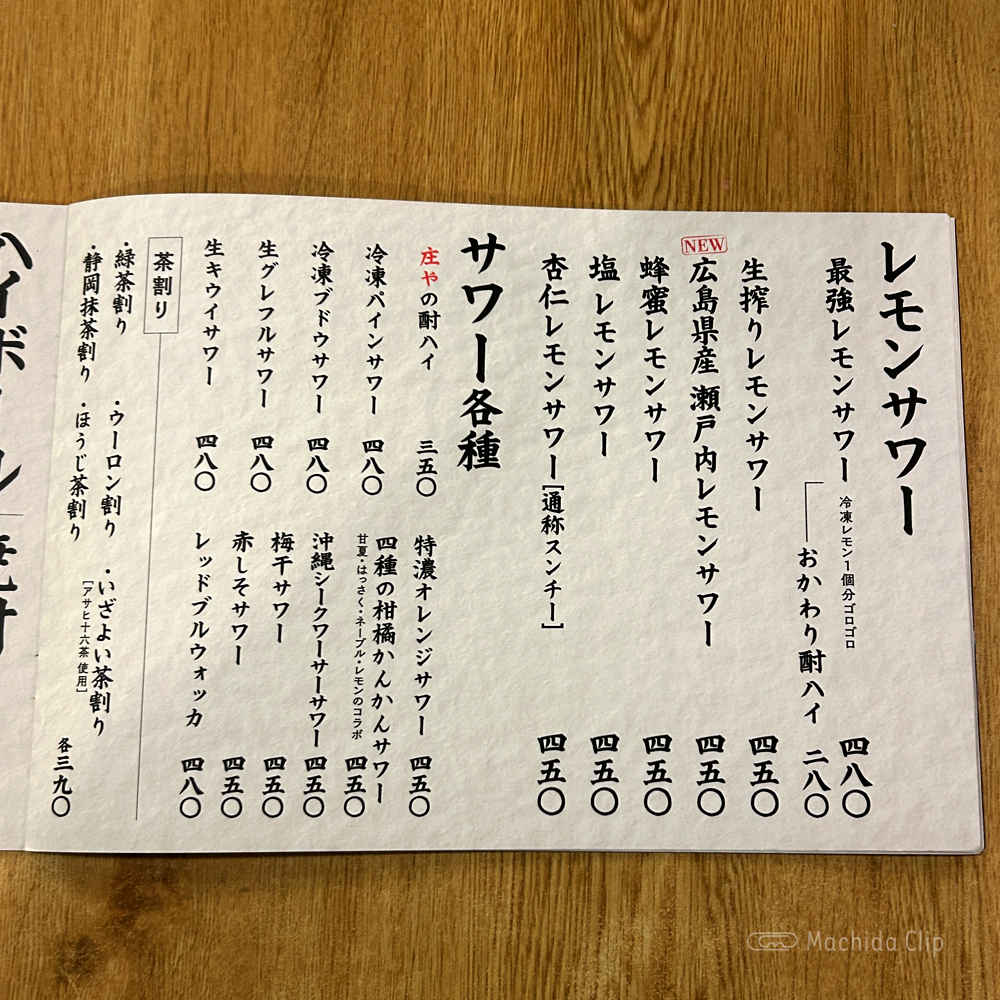 レモンサワー
最強レモンサワー 冷凍レモン1個分ゴロゴロ 四八〇
おかわり酎ハイ 二八〇
生搾りレモンサワー 四五〇
NEW
広島県産 瀬戸内レモンサワー 四五〇
蜂蜜レモンサワー 四五〇
塩レモンサワー 四五〇
杏仁レモンサワー[通称スンチー] 四五〇
サワー各種
庄やの酎ハイ 三五〇
冷凍パインサワー 四八〇
冷凍ブドウサワー 四八〇
生グレフルサワー 四八〇
生キウイサワー 四八〇
特濃オレンジサワー 四五〇
四種の柑橘かんかんサワー 四五〇
甘夏・はっさく・ネーブル・レモンのコラボ
沖縄シークワーサーサワー 四五〇
梅干サワー 四五〇
赤しそサワー 四五〇
レッドブルウォッカ 四八〇
茶割り
・緑茶割り ・ウーロン割り ・いざよい茶割り
[アサヒ十六茶 使用]
・静岡抹茶割り ・ほうじ茶割り
各三九〇
Machida Clip